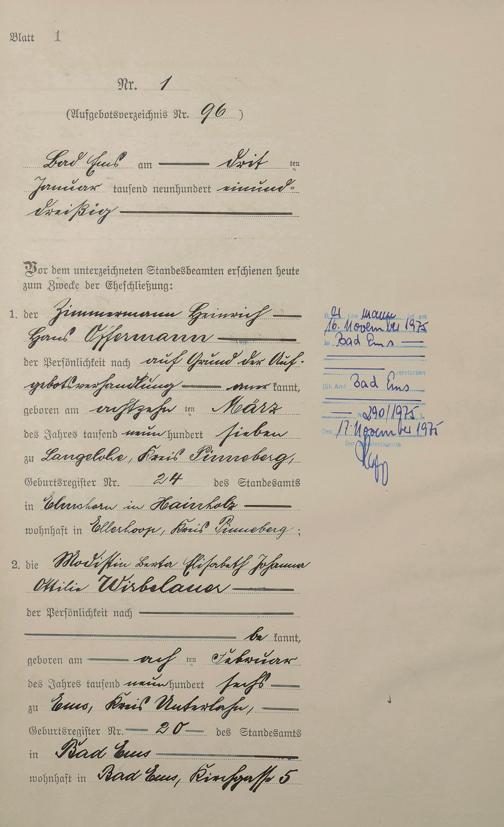 Blatt 1
Nr. 1
(Aufgebotsverzeichnis Nr. 96)
Bad Ems am dritten
Januar tausend neunhundert einund-
dreißig
Vor dem unterzeichneten Standesbeamten erschienen heute
zum Zwecke der Eheschließung:
1. der Zimmermann Heinrich
Hans Offermann
der Persönlichkeit nach auf Grund der Auf-
gebotsverhandlung anerkannt,
geboren am achtzehnten März
des Jahres tausend neunhundert sieben
zu Langelohe, Kreis Pinneberg,
Geburtsregister Nr. 24 des Standesamts
in Elmshorn in Hainholz
wohnhaft in Ellerhoop, Kreis Pinneberg;
2. die Modistin Berta Elisabeth Johanna
Ottilie Wirbelauer
der Persönlichkeit nach
bekannt,
geboren am achten Februar
des Jahres tausend neunhundert sechs
zu Ems, Kreis Unterlahn,
Geburtsregister Nr. 20 des Standesamts
in Bad Ems
wohnhaft in Bad Ems, Kirchgasse 5
16. November 1975
Bad Ems
Bad Ems
290/1975
17. November 1975